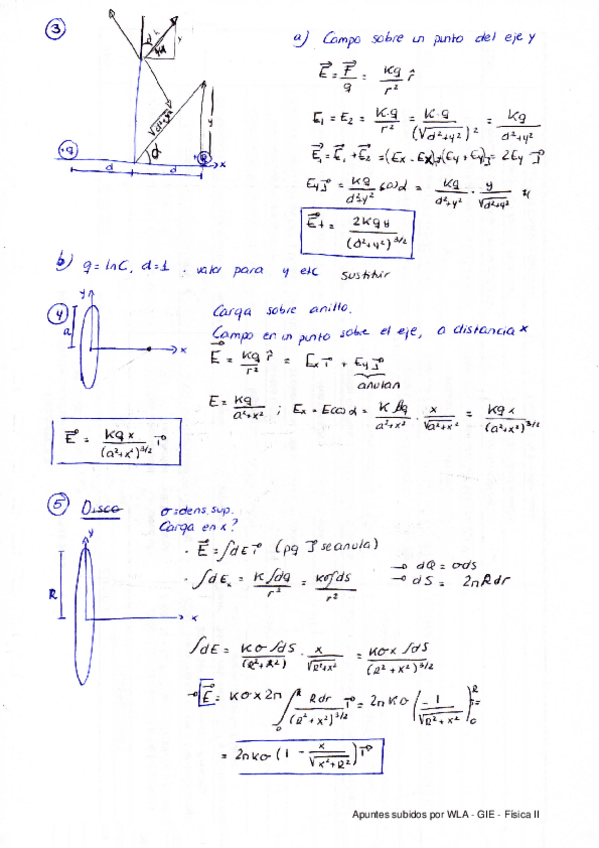 ③
a) Campo sobre un punto del eje y
E⃗ = F⃗/q = Kq/r² r̂
E₁ = E₂ = K·q/r² = K·q/(√d²+y²)² = Kq/d²+y²
√d²+y²
α
+q
x
d d
E⃗ₜ = E⃗₁ + E⃗₂ = (Ex - Ex)+(Ey + Ey)j⃗ = 2Ey j⃗
Ey j⃗ = Kq/d²+y² cosα = Kq/d²+y² · y/√d²+y²
E⃗t = 2Kqy/(d²+y²)^3/2
b) q = 1nC, d=1 . valor para y etc sustituir
④
y
a
x
Carga sobre anillo.
Campo en un punto sobre el eje, a distancia x
E⃗ = Kq/r² r̂ = Ex i⃗ + Ey j⃗
anulan
E = Kq/a²+x² ; Ex = Ecosα = Kq/a²+x² · x/√a²+x² = Kqx/(a²+x²)^3/2
E⃗ = Kqx/(a²+x²)^3/2 i⃗
⑤ Disco
σ=dens.sup.
Carga en x?
y
R
x
· E⃗ = ∫dE i⃗ (pq j⃗ se anula)
· ∫dEx = K∫dq/r² = Kσ∫ds/r²
→ dQ = σds
→ dS = 2πRdr
∫dE = Kσ∫dS/(R²+R²) · x/√R²+x² = Kσx∫dS/(R²+x²)^3/2
→ E⃗ = Kσx2π ∫₀ᴿ Rdr/(R²+x²)^3/2 i⃗ = 2πKσ (-1/√R²+x²)]₀ᴿ =
= 2πKσ (1 - x/√x²+R²) i⃗
Apuntes subidos por WLA - GIE - Física II